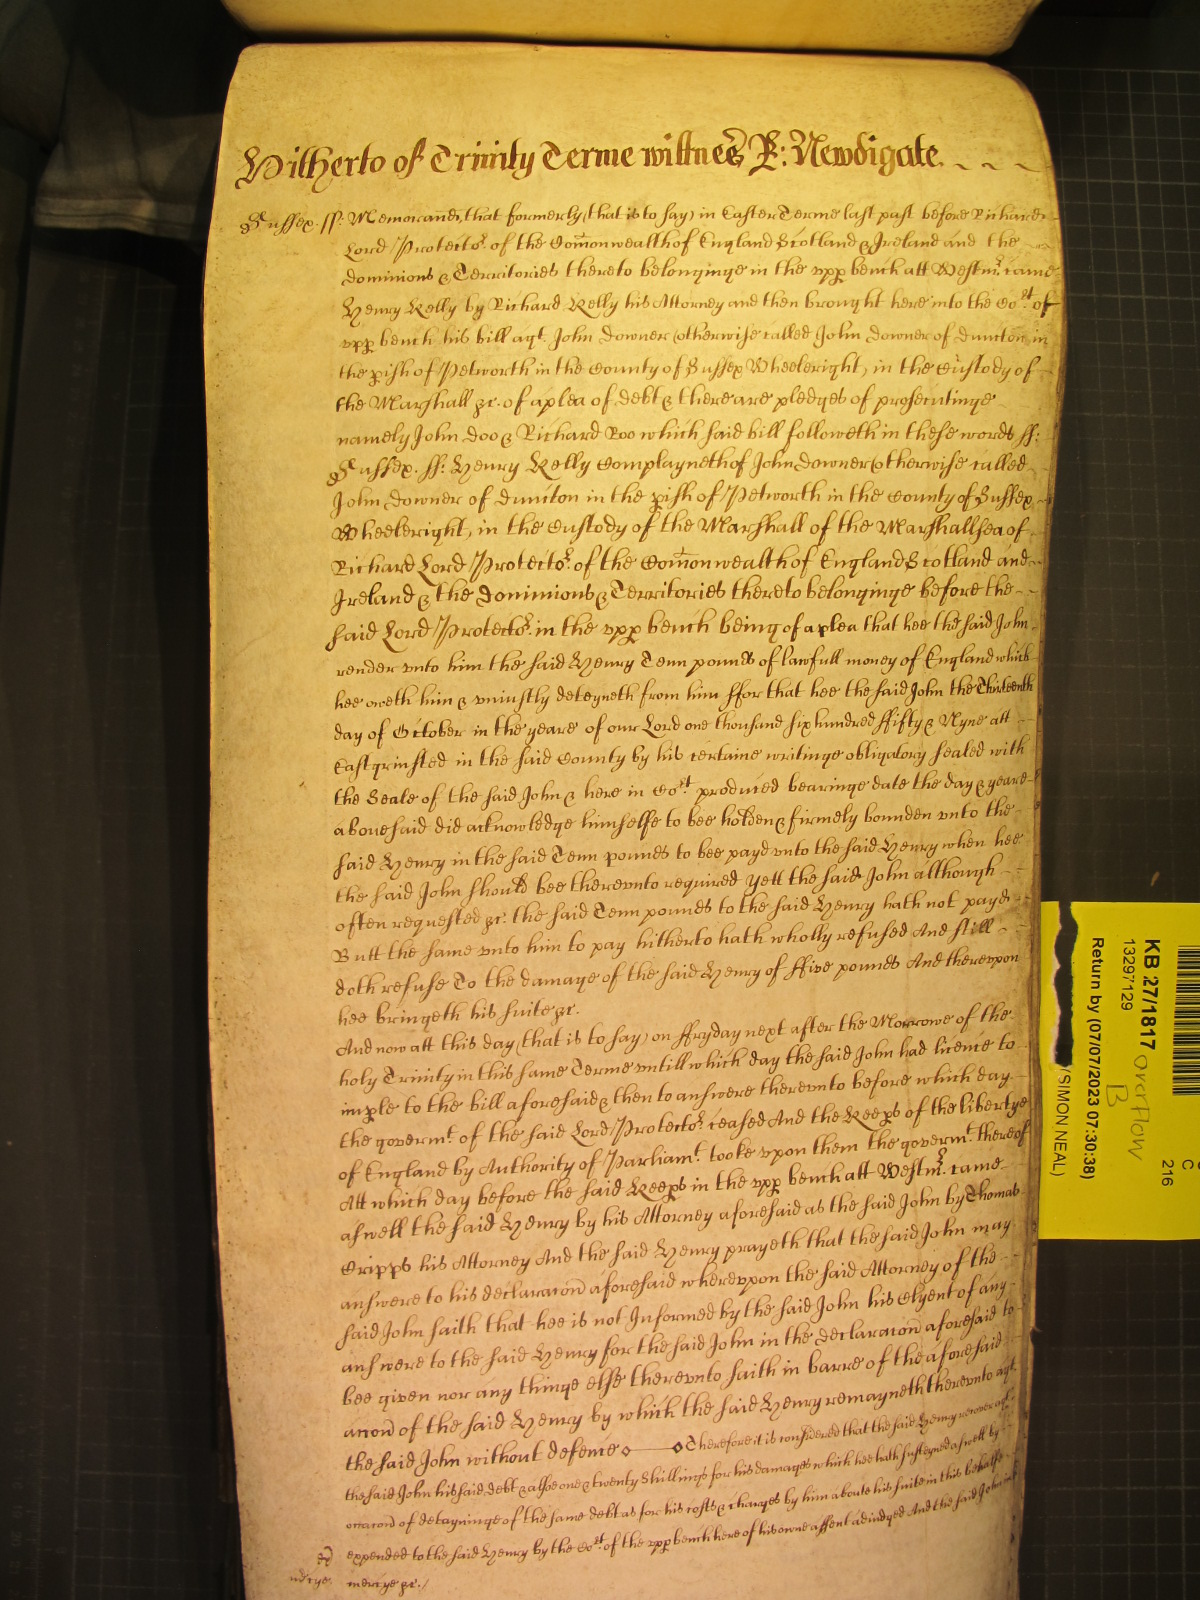 Hitherto of Trinity Terme wittnes R: Newdigate
Sussex. ss: Memorand, that formerly (that is to say) in Easter Terme last past before Richard
Lord Protector of the Comonwealth of England Scotland & Ireland and the
dominions & Territories thereto belonginge in the upp bench att Westmr. came
Henry Kelly by Richard Kelly his Attorney and then brought here into the Cort of
upp bench his bill agt. John Downer (otherwise called John Downer of Duncton in
the pish of Petworth in the County of Sussex Wheelwright, in the Custody of
the Marshall &c. of a plea of debt & there are pledges of prosecutinge
namely John Doo & Richard Roo which said bill followeth in these words ss:
Sussex. ss: Henry Kelly Complayneth of John Downer (otherwise called
John Downer of Duncton in the pish of Petworth in the County of Sussex
Wheelewright, in the Custody of the Marshall of the Marshallsea of
Richard Lord Protector. of the Comonwealth of England Scotland and
Ireland & the Dominions & Territories thereto belonginge before the
said Lord Protector. in the upp bench being of a plea that hee the said John
render unto him the said Henry Tenn pounds of lawfull money of England which
hee oweth him & uniustly deteyneth from him ffor that hee the said John the Thirteenth
day of October in the yeare of our Lord one thousand six hundred ffifty & Nyne att
Eastgrinsted in the said County by his certaine writinge obligatory sealed with
the Seale of the said John & here in Cort produced bearinge date the day & yeare
abovesaid did acknowledge himselfe to bee holden & firmely bounden unto the
said Henry in the said Tenn pounds to bee payd unto the said Henry when hee
the said John should bee thereunto required yett the said John although
often requested &c. the said Tenn pounds to the said Henry hath not payd
Butt the same unto him to pay hitherto hath wholly refused And still
doth refuse To the damage of the said Henry of ffive pounds And thereupon
hee bringeth his suite &c.
And now att this day (that is to say) on ffryday next after the Morrowe of the
holy Trinity in this same Terme untill which day the said John had licence to
imple to the bill aforesaid & then to answere thereunto before which day
the governmt. of the said Lord Protector. ceased And the Keeps of the libertye
of England by Authority of Parliamt. tooke upon them the governmt. thereof
Att which day before the said Keeps in the upp bench att Westmr. came
aswell the said Henry by his Attorney aforesaid as the said John by Thomas
Cripps his Attorney And the said Henry prayeth that the said John may
answere to his declaracon aforesaid whereupon the said Attorney of the
said John saith that hee is not Informed by the said John his Clyent of any
answere to the said Henry for the said John in the declaracon aforesaid to
bee given nor any thinge else thereunto saith in barre of the aforesaid
accon of the said Henry by which the said Henry remayneth thereunto agt.
the said John without defence Therefore it is considered that the said Henry recover agt.
the said John his said debt & alsoe one & twenty Shillings for his damages which hee hath susteyned aswell by
occacon of detayninge of the same debt as for his costs & charges by him aboute his suite in this behalfe
expended to the said Henry by the Cort. of the upp bench here of his owne assent adiudged And the said John in
mercye &c.
KB 27/1817
13297129
Return by (07/07/2023 07:30:38)
(SIMON NEAL)
overflow
B
C
216